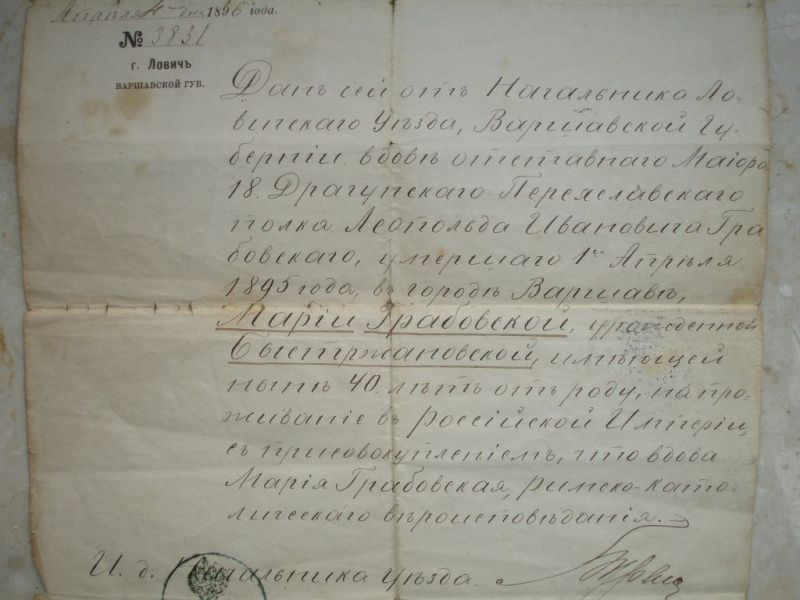 Апрѣля 4 дня 1896 года.
№ 3831
г. Ловичъ
ВАРШАВСКОЙ ГУБ.
Данъ сей отъ Начальника Ло-
вичскаго Уѣзда, Варшавской Гу-
берніи вдовѣ отставнаго Маіора
18. Драгунскаго Переяславскаго
полка Леопольда Ивановича Гра
бовскаго, умершаго 1го Апрѣля
1895 года, въ городѣ Варшавѣ,
Маріи Грабовской, урожденной
Быстржановской, имѣющей
нынѣ 40 лѣтъ отъ роду, на про-
живаніе въ Россійской Имперіи,
съ присовокупленіемъ, что вдова
Марія Грабовская, Римско-Като-
лическаго вѣроисповѣданія.
И. д. Начальника уѣзда.